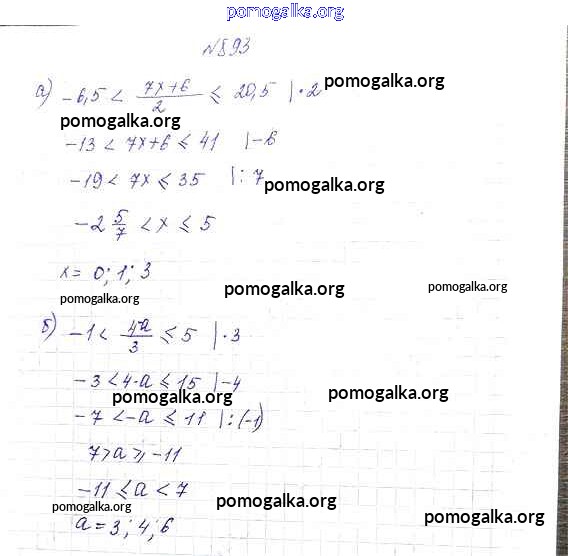 pomogalka.org
№893
а) -6,5 < (7x+6)/2 ≤ 20,5 |·2 pomogalka.org
pomogalka.org
-13 < 7x+6 ≤ 41 |-6
-19 < 7x ≤ 35 |: 7
pomogalka.org
-2 5/7 < x ≤ 5
x = 0; 1; 3
pomogalka.org pomogalka.org pomogalka.org
б) -1 < 4-a/3 ≤ 5 |·3
-3 < 4-a ≤ 15 |-4
pomogalka.org pomogalka.org
-7 < -a ≤ 11 |: (-1)
7 > a ≥ -11
-11 ≤ a < 7
pomogalka.org pomogalka.org pomogalka.org
a = 3; 4; 6
pomogalka.org